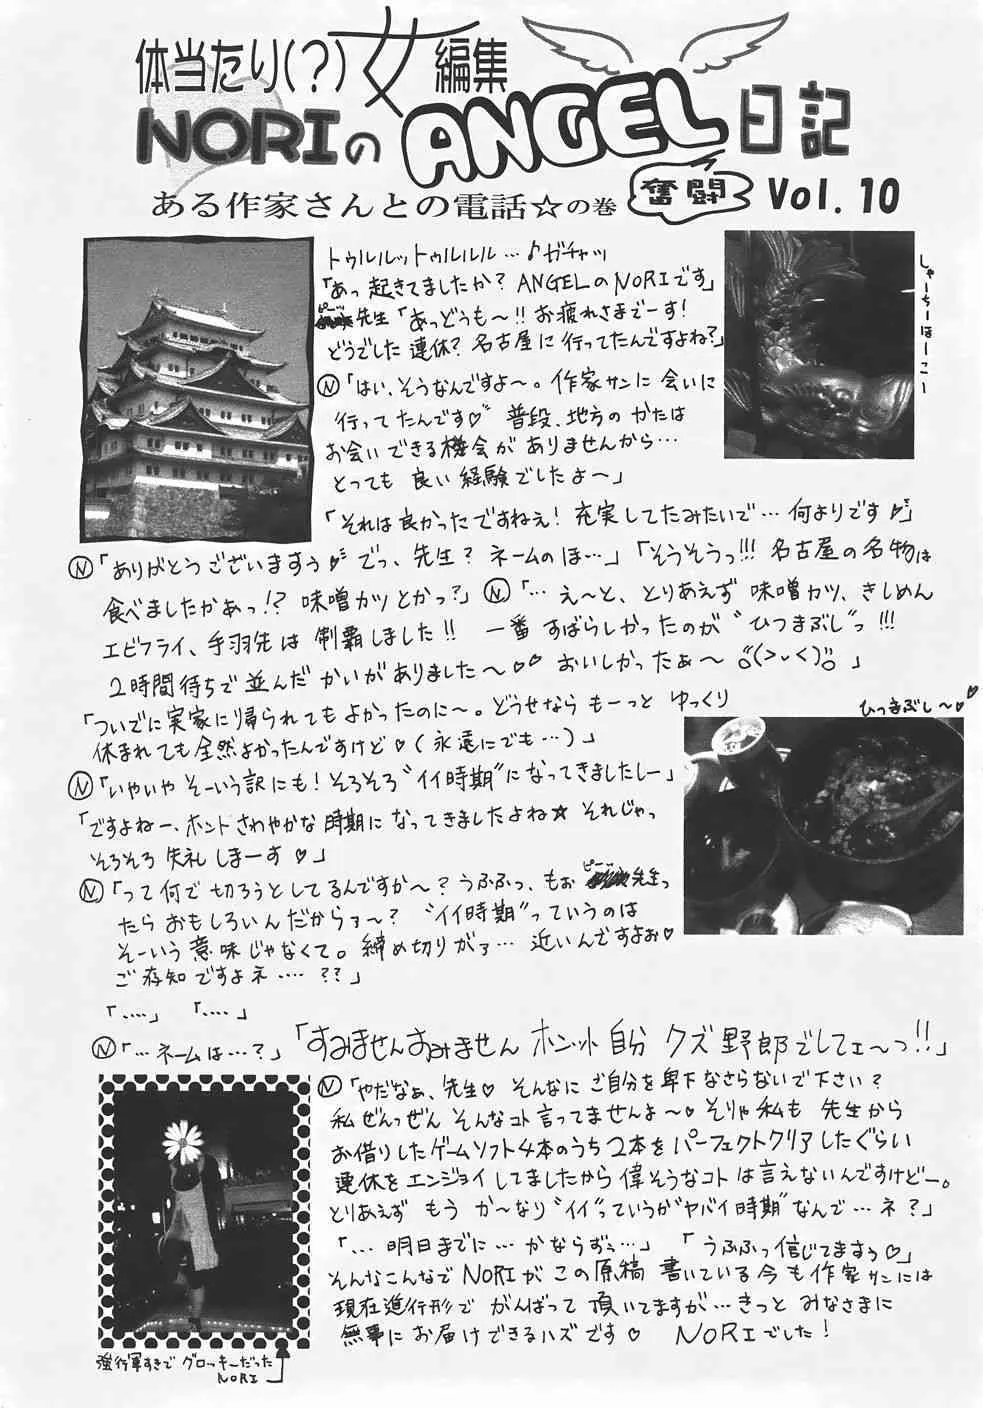 体当たり(?)女編集
NORIのANGEL日記
奮闘
ある作家さんとの電話☆の巻
Vol. 10
トゥルルットゥルルル…♪ガチャッ
「あっ起きてましたか? ANGELのNORIです」
ピーッ
先生「あっどうも〜!! お疲れさまでーす!
どうでした連休? 名古屋に行ってたんですよね?」
しゃーちーほーこー
Ⓝ「はい、そうなんですよ〜。作家サンに会いに
行ってたんです♡ 普段、地方のかたは
お会いできる機会がありませんから…
とっても良い経験でしたよ〜」
「それは良かったですねぇ! 充実してたみたいで…何よりです♡」
Ⓝ「ありがとうございますぅ♡ でっ、先生? ネームのほ…」「そうそうっ!!! 名古屋の名物は
食べましたかあっ!? 味噌カツとかっ?」Ⓝ「…え〜と、とりあえず味噌カツ、きしめん
エビフライ、手羽先は制覇しました!! 一番すばらしかったのが“ひつまぶし”っ!!!
2時間待ちで並んだかいがありました〜♡♡ おいしかったぁ〜 」
「ついでに実家に帰られてもよかったのに〜。どうせならもーっとゆっくり
休まれても全然よかったんですけど♡(永遠にでも…)」
ひつまぶし〜♡
Ⓝ「いやいやそーいう訳にも! そろそろ“イイ時期”になってきましたしー」
「ですよねー、ホントさわやかな時期になってきましたよね★ それじゃっ
そろそろ失礼しまーす♡」
Ⓝ「って何で切ろうとしてるんですか〜? うふふっ、もぉ 先生っ
ピーッ
たらおもしろいんだからァ〜? “イイ時期”っていうのは
そーいう意味じゃなくて。締め切りがァ… 近いんですよぉ♡
ご存知ですよネ…. ??」
「….」 「….」
Ⓝ「…ネームは…?」「すみませんすみません ホンット自分クズ野郎でしてェ〜っ!!」
Ⓝ「やだなぁ、先生♡ そんなにご自分を卑下なさらないで下さい?
私ぜんっぜんそんなコト言ってませんよ〜♡ そりゃ私も先生から
お借りしたゲームソフト4本のうち2本をパーフェクトクリアしたぐらい
連休をエンジョイしてましたから偉そうなコトは言えないんですけどー。
とりあえずもうか〜なり“イイ”っていうが“ヤバイ時期”なんで…ネ?」
「…明日までに…かならずぅ…」 「うふふっ信じてますぅ♡」
そんなこんなでNORIがこの原稿書いている今も作家サンには
現在進行形でがんばって頂いてますが…きっとみなさまに
無事にお届けできるハズです♡ NORIでした!
強行軍すぎでグロッキーだった
NORI